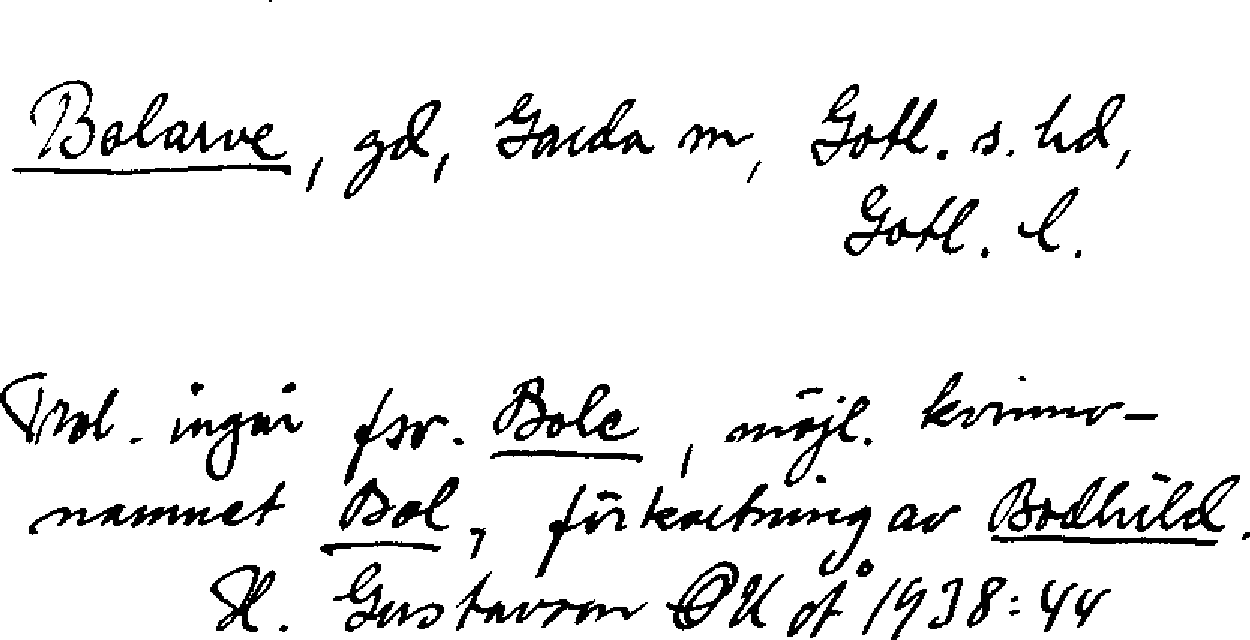 Bolarve, gd, Garda sn, Gotl. s. hd,
Gotl. l.
Trol. ingår fsv. Bole, möjl. kvinno-
namnet Bol, förkortning av Bodhild.
H. Gustavson OK å 1938:44